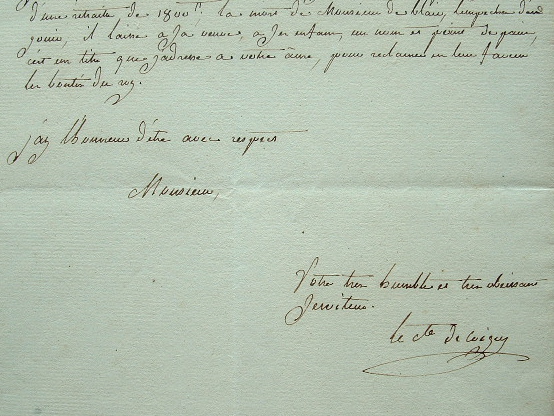 d'une retraite de 1800ᵗᵗ la mort de Monsieur de blair, l'empeche d'en
jouir, il laisse a sa veuve, a ses enfans, un nom et point de pain,
c'est un titre que j'adresse a votre âme, pour reclamer en leur faveur
les bontés du roy.
j'ay l'honneur d'être avec respect
Monsieur,
Votre tres humble et tres obeissant
Serviteur.
le cte de